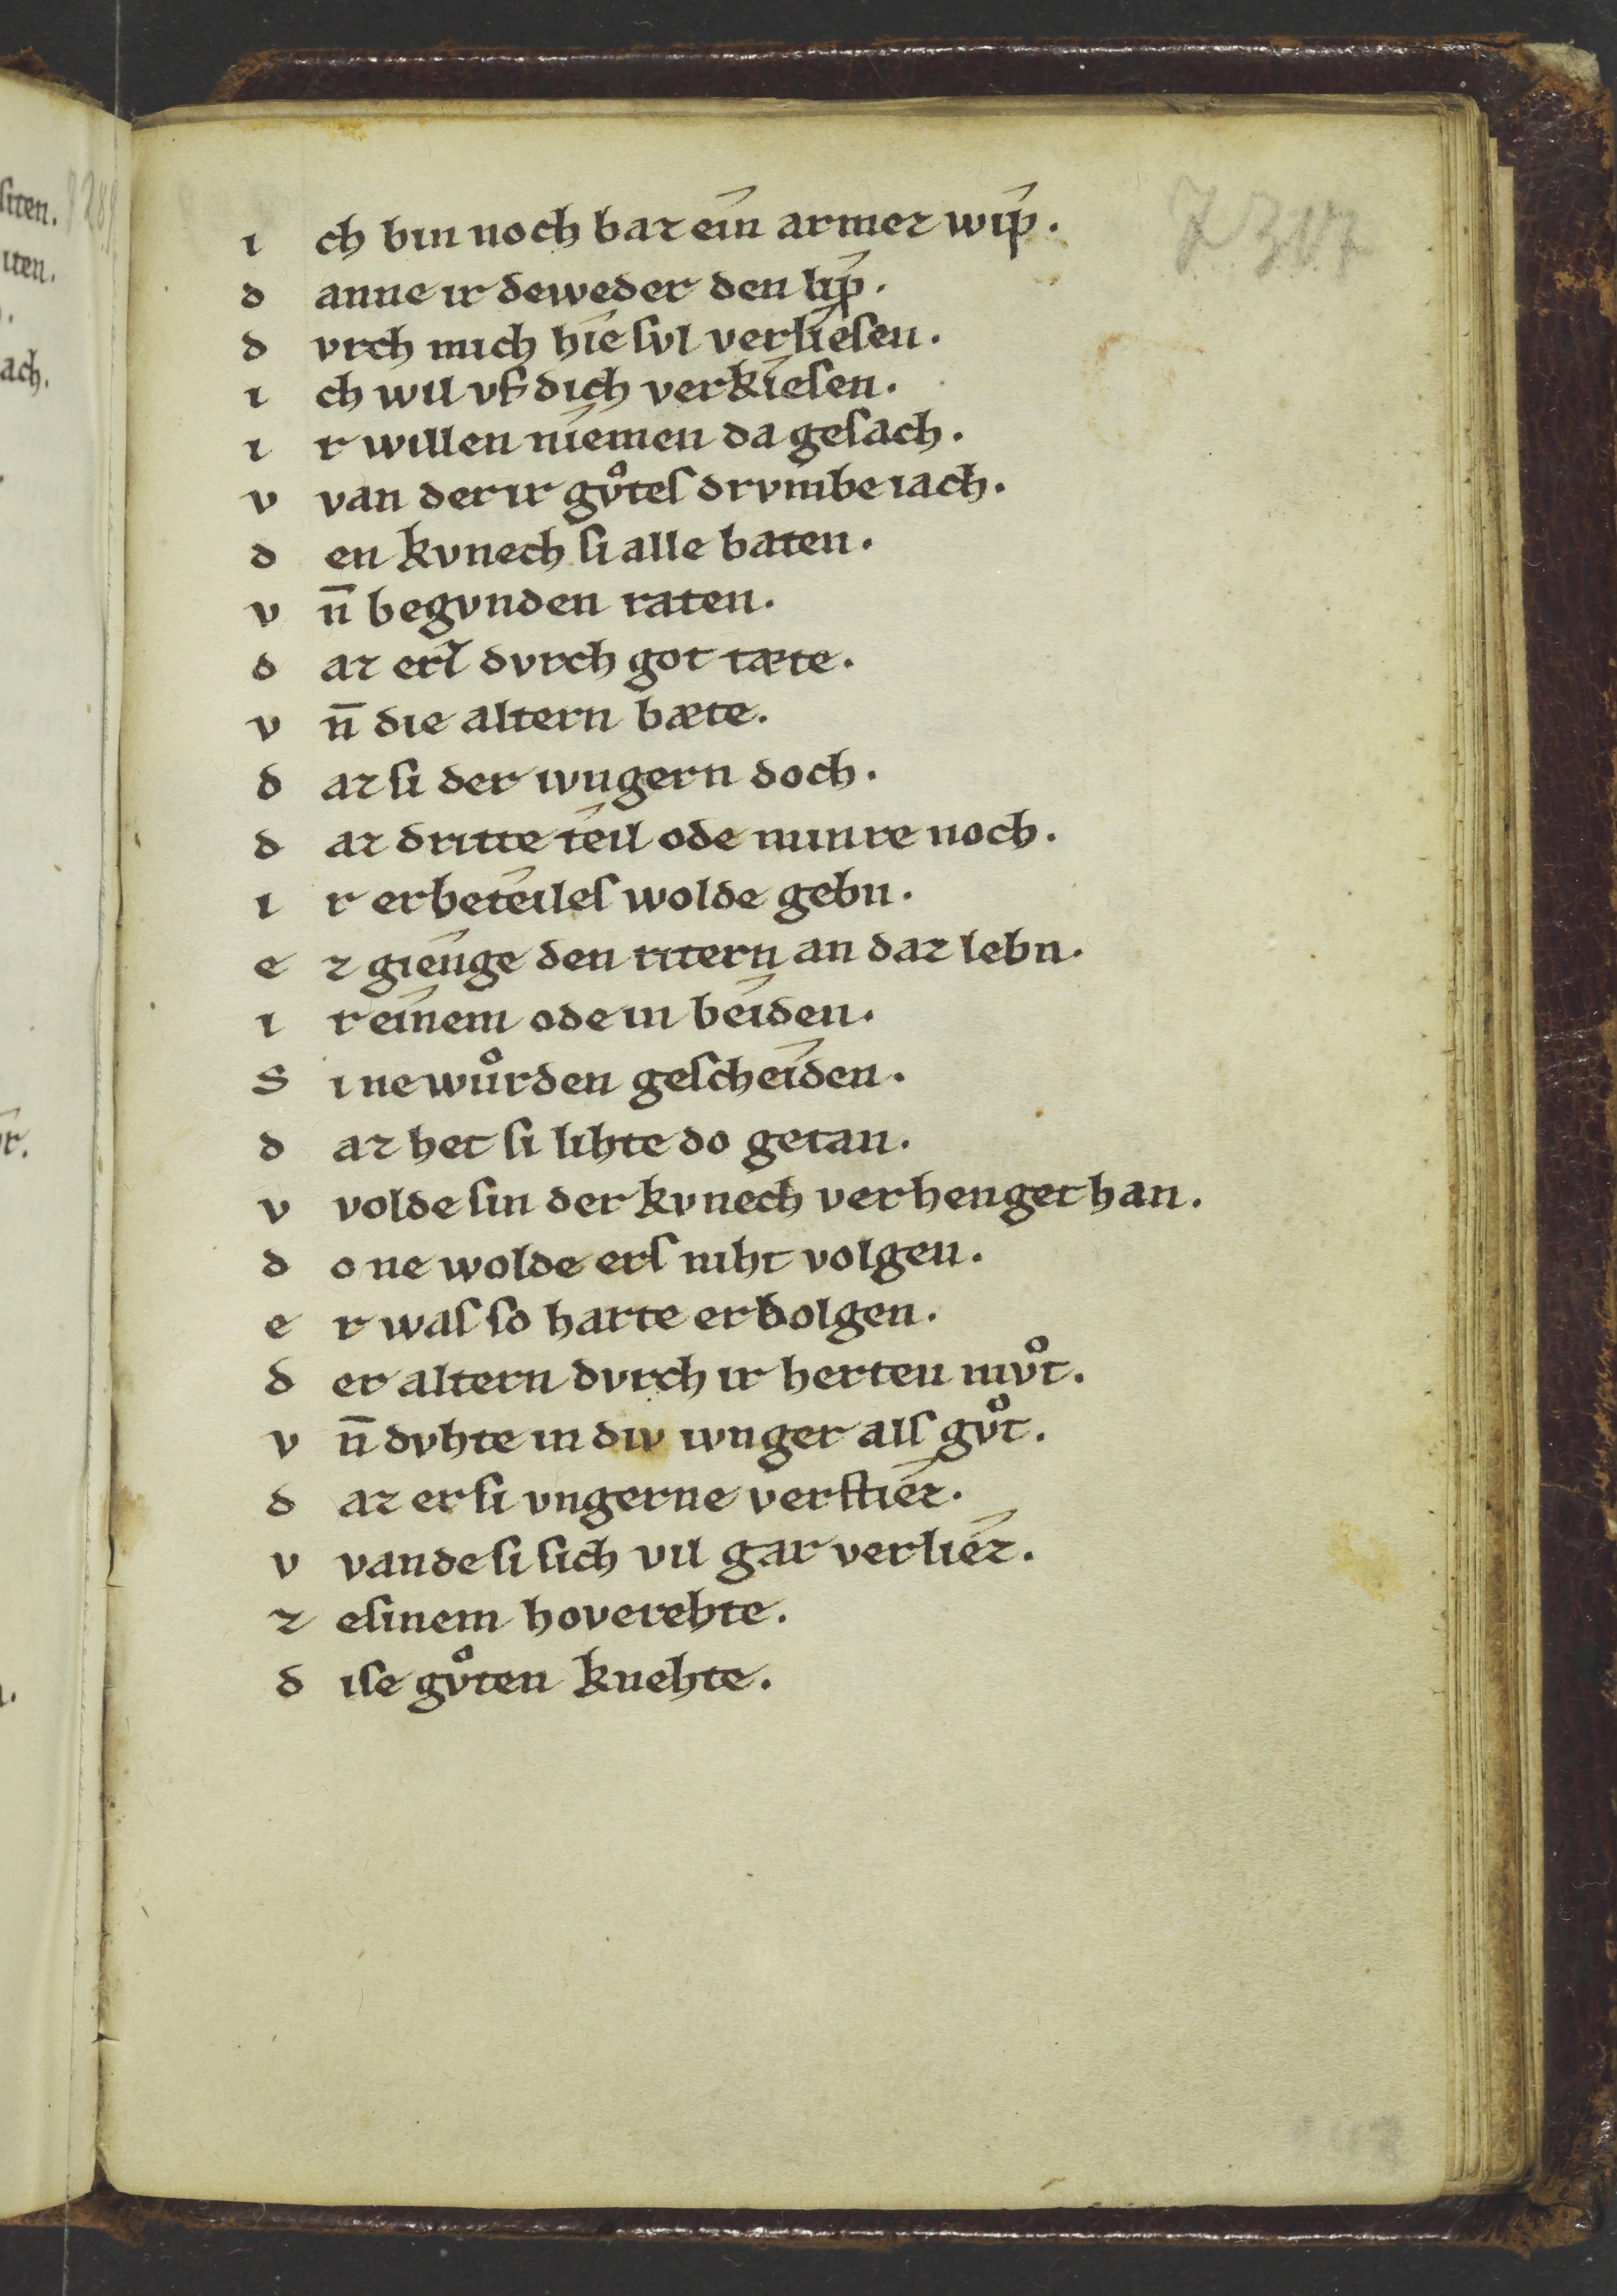 7317
i ch bin noch baz ein armez wip.
d anne ir deweder den lip.
d vrch mich hie svl verliesen.
i ch wil vf dich verkiesen.
i r willen niemen da gesach.
v van der ir gvͦtes drvmbe iach.
d en kvnech si alle baten.
v n̄ begvnden raten.
d az erz dvrch got tæte.
v n̄ die altern bæte.
d az si der ivngern doch.
d az dritte teil ode minre noch.
i r erbeteiles wolde gebn.
e z gienge den ritern an daz lebn.
i r einem ode in beiden.
S i ne wuͦrden gescheiden.
d az het si lihte do getan.
v volde sin der kvnech verhenget han.
d o ne wolde ers niht volgen.
e r was so harte erbolgen.
d er altern dvrch ir herten mvͦt.
v n̄ dvhte in div ivnger als gvͦt.
d az er si vngerne verstiez.
v vande si sich vil gar verliez.
z e sinem hoverehte.
d ise gvͦten knehte.